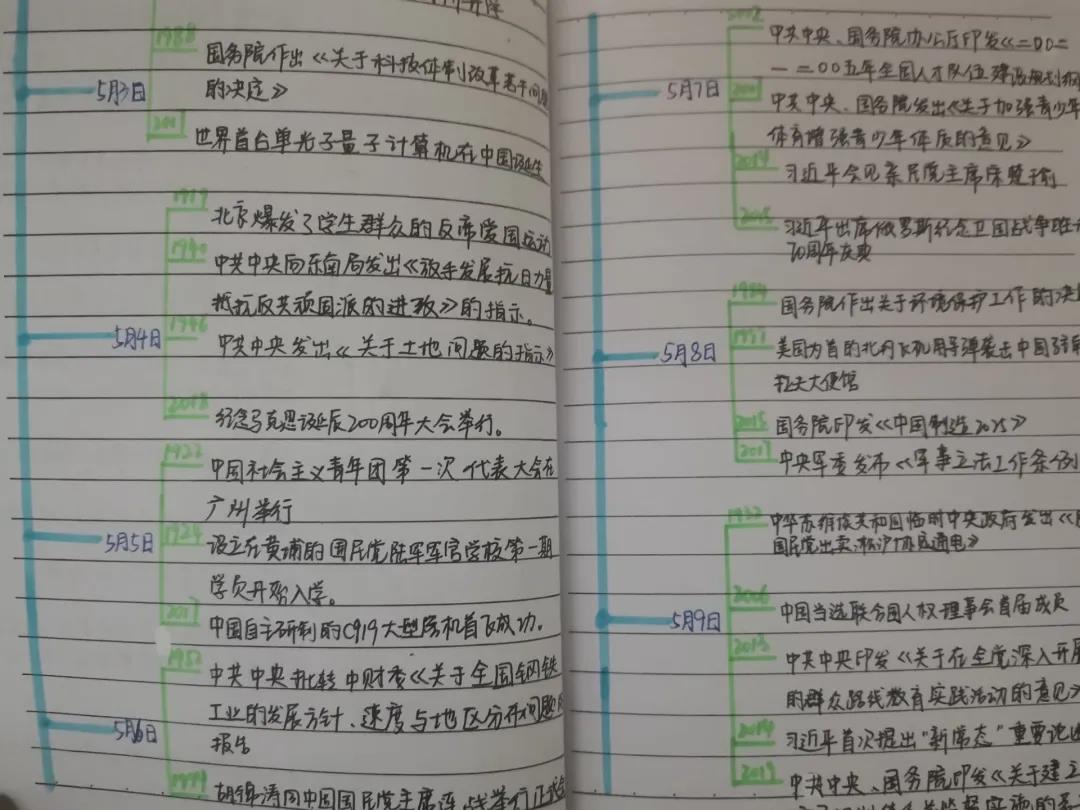 1988
国务院作出《关于科技体制改革若干问题
的决定》
5月3日
2017
世界首台单光子量子计算机在中国诞生
1919
北京爆发了学生群众的反帝爱国运动
1940
中共中央向东南局发出《放手发展抗日力量
抵抗反共顽固派的进攻》的指示。
5月4日
1946
中共中央发出《关于土地问题的指示》
2018
纪念马克思诞辰200周年大会举行。
1922
中国社会主义青年团第一次代表大会在
广州举行
5月5日
1924
设立在黄埔的国民党陆军军官学校第一期
学员开始入学。
2017
中国自主研制的C919大型客机首飞成功。
1952
中共中央批转中财委《关于全国钢铁
工业的发展方针、速度与地区分布问题的
5月6日
报告
胡锦涛同中国国民党主席连战举行正式会
2002
中共中央、国务院办公厅印发《二〇〇二
一二〇〇五年全国人才队伍建设规划纲
5月7日
2007
中共中央、国务院发出《关于加强青少年
体育增强青少年体质的意见》
2014
习近平会见亲民党主席宋楚瑜
2015
习近平出席俄罗斯纪念卫国战争胜利
70周年庆典
1984
国务院作出关于环境保护工作的决
5月8日
美国为首的北约飞机用导弹袭击中国驻南
拉夫大使馆
2015
国务院印发《中国制造2025》
2017
中央军委发布《军事立法工作条例
1932
中华苏维埃共和国临时中央政府发出《
国民党出卖淞沪协议通电》
2006
中国当选联合国人权理事会首届成员
5月9日
2013
中共中央印发《关于在全党深入开展
的群众路线教育实践活动的意见》
2014
习近平首次提出“新常态”重要论述
2019
中共中央、国务院印发《关于建立